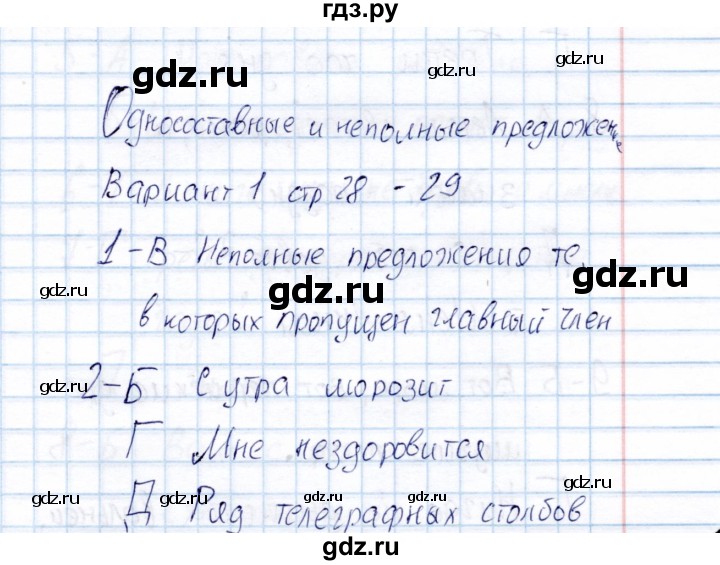 гдз.ру
gdz.ru gdz.ru
Односоставные и неполные предложен
Вариант 1 стр 28 - 29
1-В Неполные предложения те,
gdz.ru gdz.ru gdz.ru
в которых пропущен главный член
2-Б С утра морозит
gdz.ru gdz.ru
Г Мне нездоровится
gdz.ru
gdz.ru gdz.ru gdz.ru gdz.ru gdz.ru
Д Ряд телеграфных столбов
gdz.ru